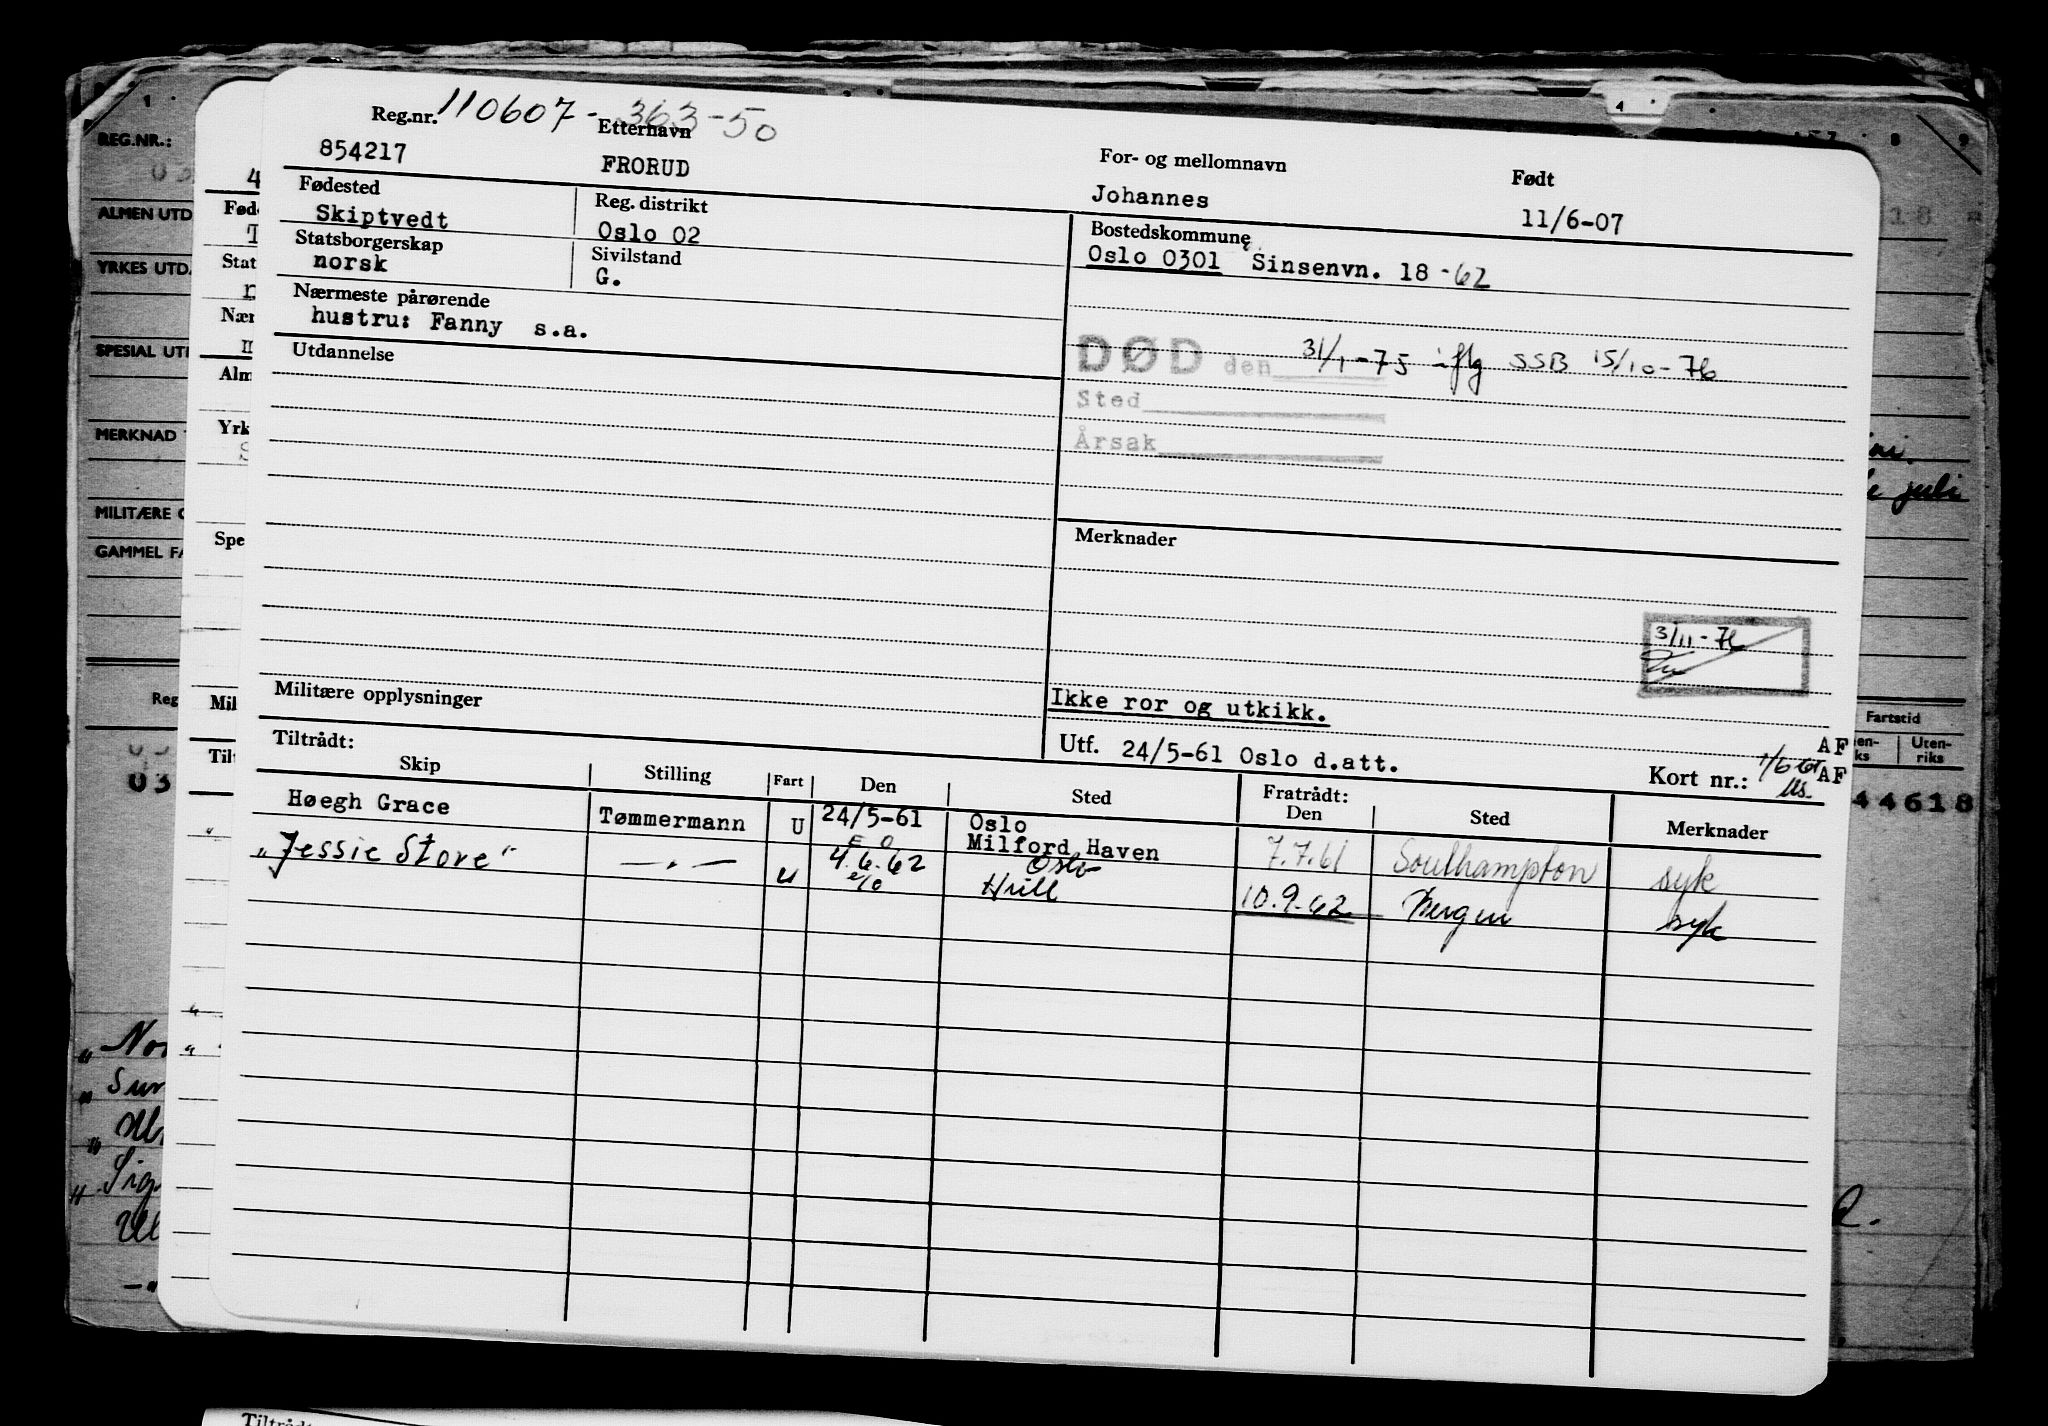 Reg.nr. 110607-363-50
Etternavn
For- og mellomnavn
Født
854217
FRORUD
Johannes
11/6-07
Fødested
Reg. distrikt
Bostedskommune
Skiptvedt
Oslo 02
Oslo 0301 Sinsenvn. 18 -62
Statsborgerskap
Sivilstand
norsk
G.
Nærmeste pårørende
hustru: Fanny s.a.
Utdannelse
DØD den 31/1-75 iflg SSB 15/10-76
Sted
Årsak
Merknader
3/11-76
Militære opplysninger
Ikke ror og utkikk.
Utf. 24/5-61 Oslo d.att.
AF
Kort nr.:
AF
Tiltrådt:
Skip
Stilling
Fart
Den
Sted
Fratrådt:
Den
Sted
Merknader
Høegh Grace
Tømmermann
U
24/5-61
Oslo
E O
Milford Haven
7.7.61
Southampton
syk
"Jessie Stove"
— " —
u
4.6.62
Oslo
e/o
Hull
10.9.62
Bergen
syk
REG.NR.:
ALMEN UTD
YRKES UTD.
SPESIAL UT
MERKNAD
MILITÆRE
GAMMEL FA
Reg
03
1
4
8
9
18
juli
Fartstid
Uten-
riks
44618
4
Fød
Stat
Nær
Alm
Yrk
Spe
Mil
Til
Tiltrådt